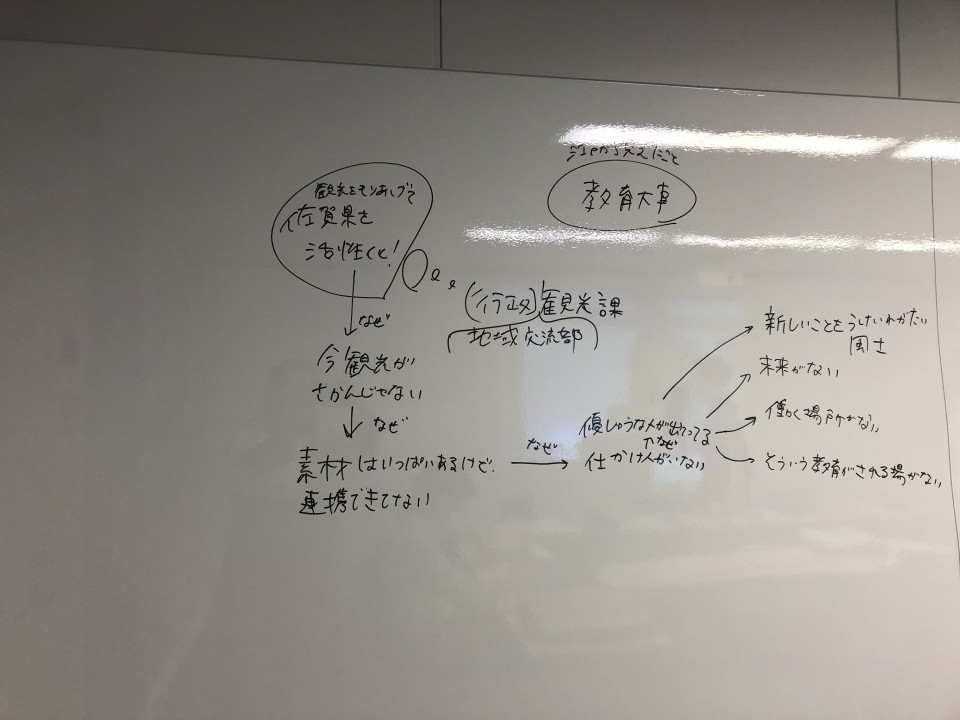 観光をもりあげて
佐賀県を
活性化!
なぜ
今観光が
さかんじゃない
なぜ
素材はいっぱいあるけど、
連携できてない
教育大事
(行政)観光課
地域交流部
なぜ
優しゅうな人が出てってる
なぜ
仕かけ人がいない
新しいことをうけいれがたい
風土
未来がない
働く場所がない
そういう教育がされる場がない